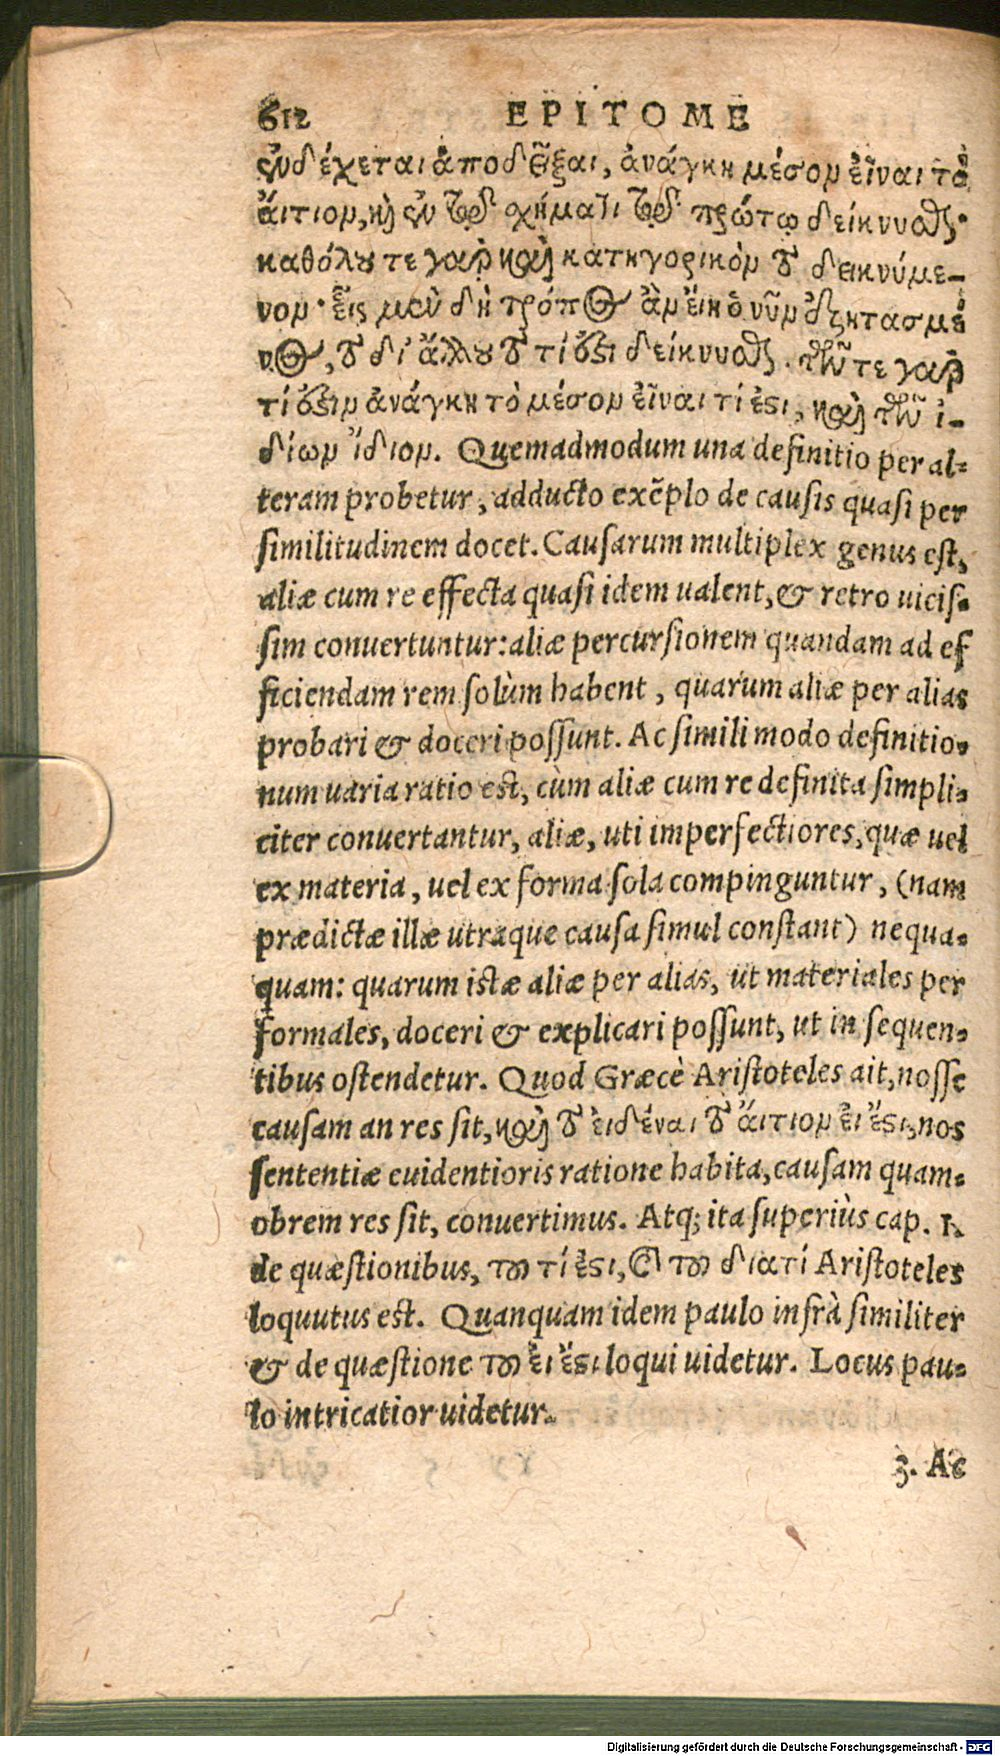 612 EPITOME
ἐνδέχεται ἀποδεῖξαι, ἀνάγκη μέσον εἶναι τὸ
αἴτιον, καὶ ἐν τῷ σχήματι τῷ πρώτῳ δείκνυσθαι·
καθόλου τε γὰρ καὶ κατηγορικὸν τὸ δεικνύμε-
νον· εἷς μὲν δὴ τρόπος ἂν εἴη ὁ νῦν ἐξητασμέ
νος, τὸ δι' ἄλλου τὸ τί ἐστι δείκνυσθαι. τῶν τε γὰρ
τί ἐστιν ἀνάγκη τὸ μέσον εἶναι τί ἐστι, καὶ τῶν ἰ-
δίων ἴδιον. Quemadmodum una definitio per al-
teram probetur, adducto exẽplo de causis quasi per
similitudinem docet. Causarum multiplex genus est,
aliæ cum re effecta quasi idem ualent, & retro uicis-
sim conuertuntur: aliæ percursionem quandam ad ef
ficiendam rem solùm habent, quarum aliæ per alias
probari & doceri possunt. Ac simili modo definitio-
num uaria ratio est, cùm aliæ cum re definita simpli-
citer conuertantur, aliæ, uti imperfectiores, quæ uel
ex materia, uel ex forma sola compinguntur, (nam
prædictæ illæ utraque causa simul constant) nequa-
quam: quarum istæ aliæ per alias, ut materiales per
formales, doceri & explicari possunt, ut in sequen-
tibus ostendetur. Quod Græcè Aristoteles ait, nosse
causam an res sit, καὶ τὸ εἰδέναι τὸ αἴτιον εἰ ἔστι, nos
sententiæ euidentioris ratione habita, causam quam-
obrem res sit, conuertimus. Atq; ita superiùs cap. 1.
de quæstionibus, τοῦ τί ἐστι, & τοῦ διατί Aristoteles
loquutus est. Quanquam idem paulo infrà similiter
& de quæstione τοῦ εἰ ἔστι loqui uidetur. Locus pau-
lo intricatior uidetur.
3. Ac
Digitalisierung gefördert durch die Deutsche Forschungsgemeinschaft - DFG